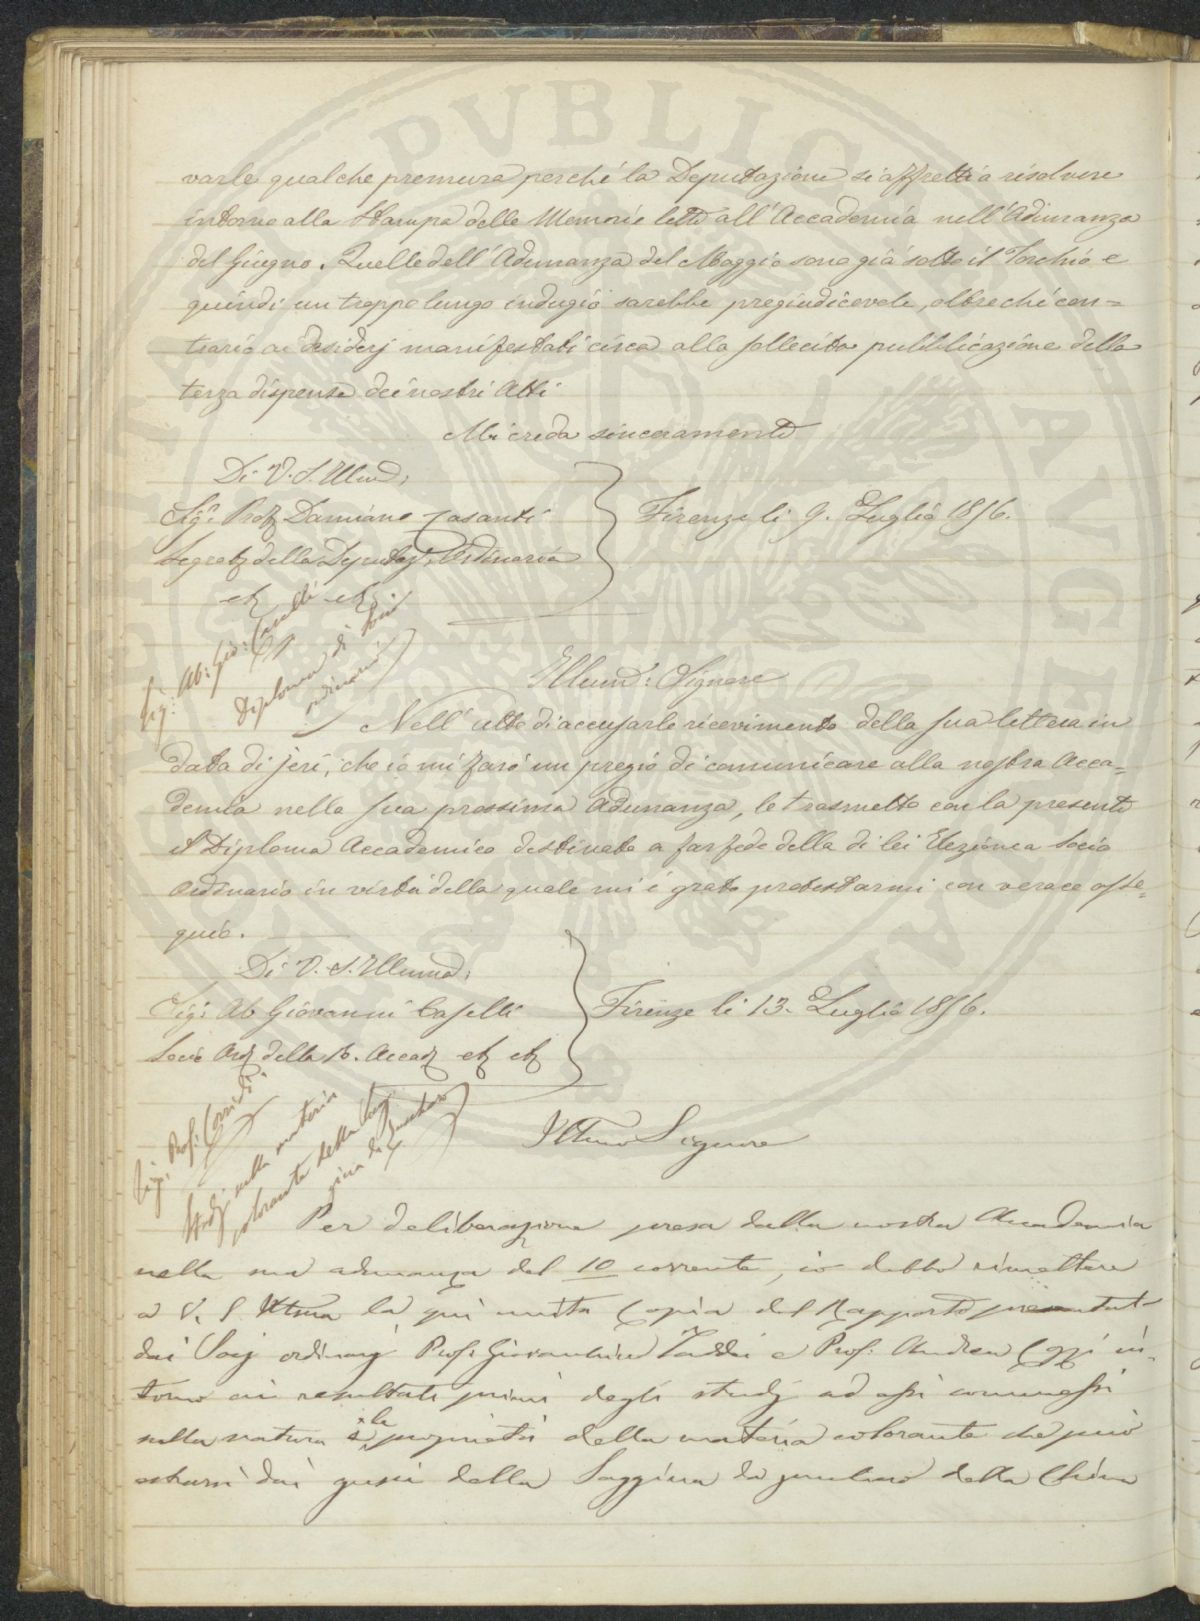 varle qualche premura perché la Deputazione si affretti a risolvere
intorno alla Stampa delle Memorie lette all'Accademia nell'Adunanza
del Giugno. Quelle dell'Adunanza del Maggio sono già sotto il Torchio e
quindi un troppo lungo indugio sarebbe pregiudicevole, oltreché con=
trario ai desiderj manifestati circa alla sollecita pubblicazione della
terza dispensa dei nostri Atti
Mi creda sinceramente
Di V. S. Illma:
Sigr. Prof. Damiano Casanti
Segret della Deputaz. Ordinaria
Firenze li 9. Luglio 1856.
Sig: Ab: Gio: Caselli
Diploma di Socio
ordinario
Illma: Signore
Nell'atto di accusarle ricevimento della sua lettera in
data di jeri, che io mi farò un pregio di comunicare alla nostra Acca=
demia nella sua prossima Adunanza, le trasmetto con la presente
il Diploma Accademico destinato a far fede della di lei Elezione a Socio
Ordinario in virtù della quale mi è grato protestarmi con verace osse=
quio.
Di V. S. Illuma:
Sig: Ab Giovanni Caselli
Socio Ord della R. Accad
Firenze li 13. Luglio 1856.
Sig. Prof: Corridi
Studj sulla materia
colorante della Sag
gina da Zucchero
Illmo Signore
Per deliberazione presa dalla nostra Accademia
nella sua adunanza del 10 corrente, io debbo rimettere
a V. S. Illma la qui unita Copia del Rapporto presentat
dai Socj ordinarj Prof: Giovacchino Taddei e Prof: Andrea Cozzi in=
torno ai resultati primi degli studj ad essi commessi
sulla natura e le proprietà della materia colorante che può
estrarsi dai gusci della Saggina da zucchero della China